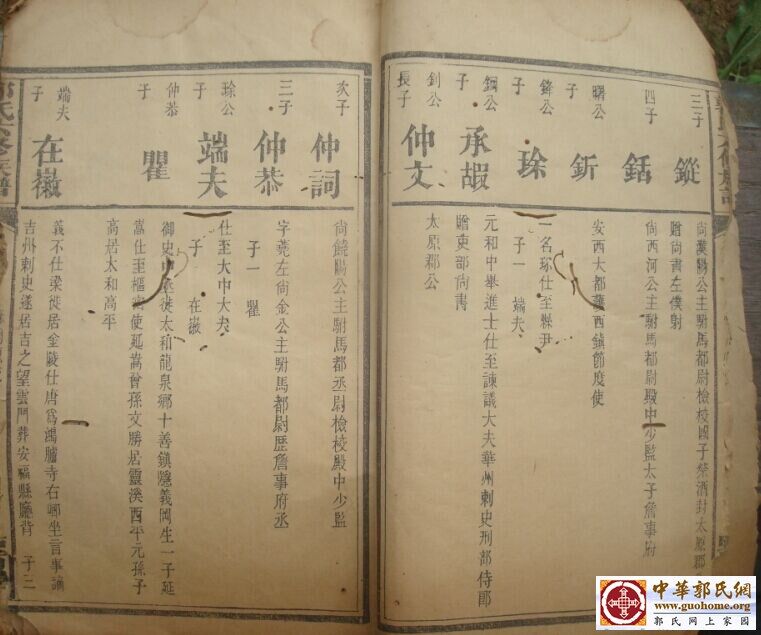 三子
鏦
尙漢陽公主駙馬都尉檢校國子祭酒封太原郡
贈尙書左僕射
四子
銛
尙西河公主駙馬都尉殿中少監太子詹事府
曙公
子
釿
安西大都護西鎮節度使
鋒公
子
琮
一名琢仕至縣尹
子一 端夫
鋼公
子
承嘏
元和中舉進士仕至諫議大夫華州刺史刑部侍郎
贈吏部尙書
釗公
長子
仲文
太原郡公
次子
仲詞
尙饒陽公主駙馬都丞尉檢校殿中少監
三子
仲恭
字蕘左尙金公主駙馬都尉歷詹事府丞
子一 瞿
琮公
子
端夫
仕至大中大夫
子 在徽
仲恭
子
瞿
御史中丞徙太和龍泉鄉十善鎮隱義岡生一子延
嵩仕至樞密使延嵩曾孫文勝居靈溪西平元孫子
高居太和高平
端夫
子
在徽
義不仕梁徙居金陵仕唐爲鴻臚寺右卿坐言事謫
吉州刺史遂居吉之望雲門葬安福縣廳背 子三
中華郭氏網
www.guohome.org
郭氏网上家园